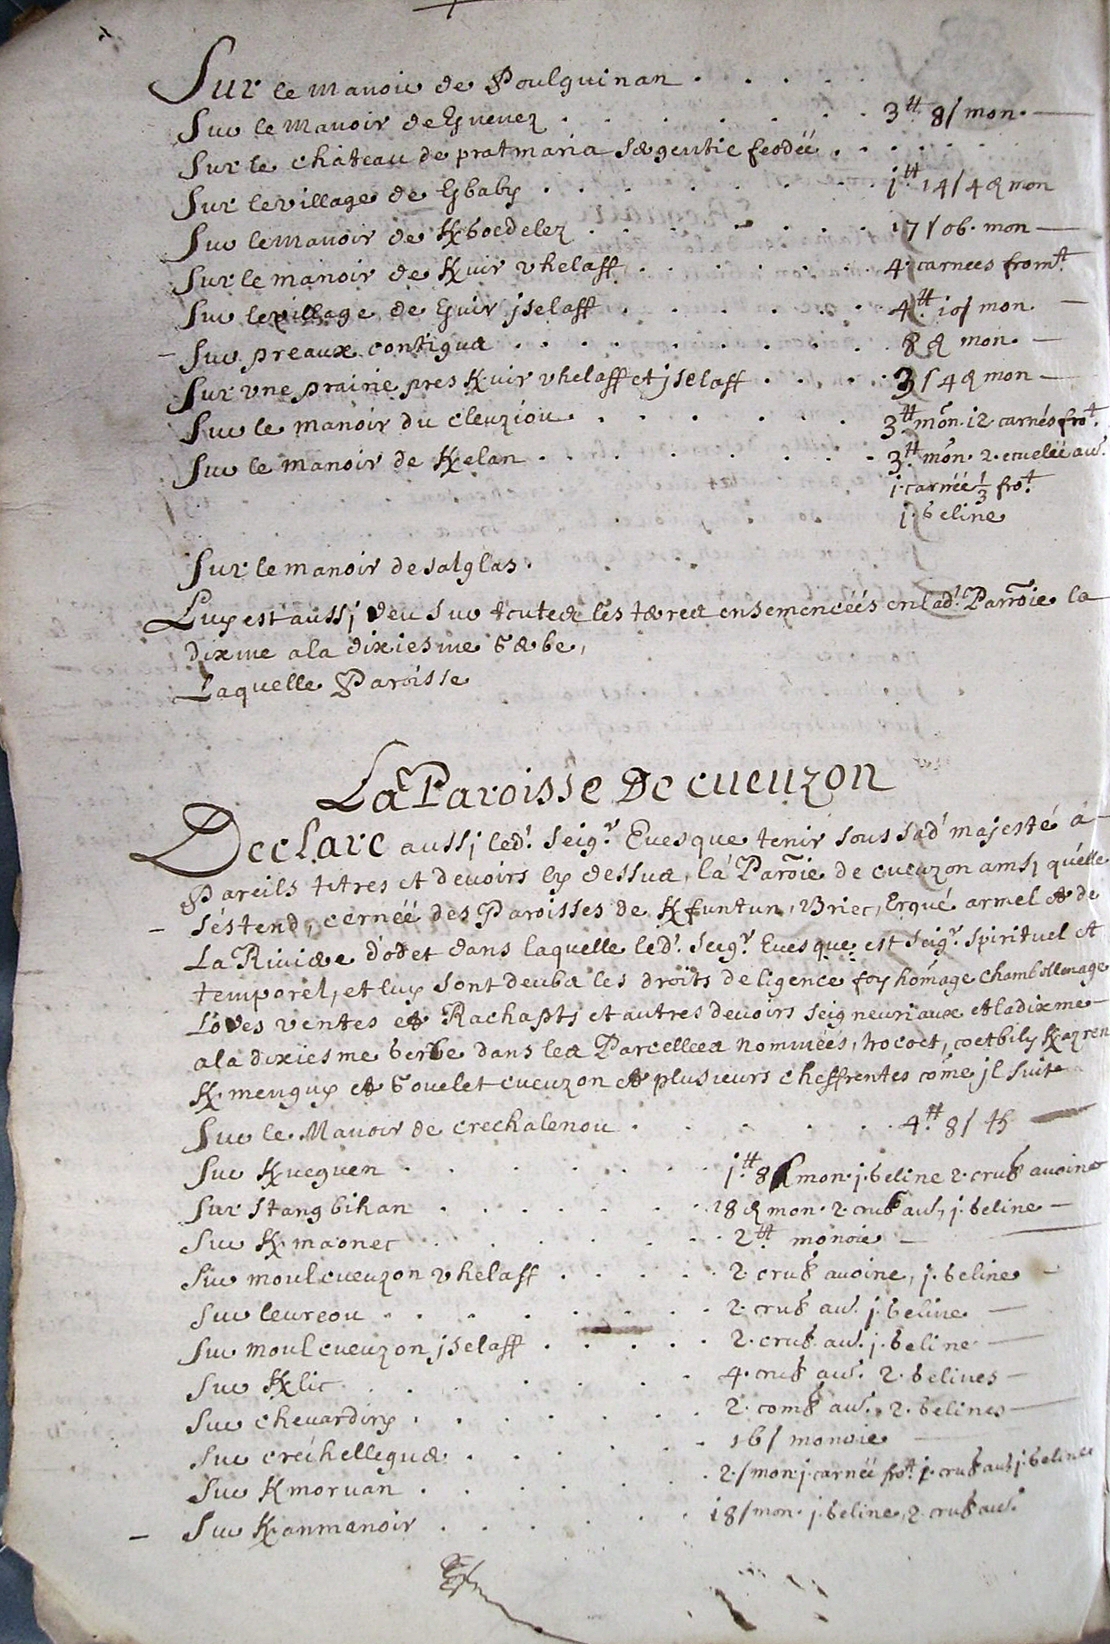 Sur le manoir de Poulguinan . . . . .
Sur le Manoir de Kguenez . . . . . . . . 3tt 8s mon.
Sur le château de pratmaria sergentie feodéé . . . . . .
Sur le village de Kbaby . . . . . . . . 1tt 14s 4d mon
Sur le manoir de Kboedelez . . . . . . . 17s 06. mon
Sur le manoir de Kuir vhelaff . . . . . . . 4 carnees fromt.
Sur le village de Kuir jselaff . . . . . . . 4tt 10s mon
- Sur preaux contigus . . . . . . . . . 8d mon.
Sur vne prairie pres Kuir vhelaff et jselaff . . . . 3s 4d mon
Sur le manoir du cleuziou . . . . . . . 3tt mon. 12. carnés frot.
Sur le manoir de Kelan . . . . . . . . . 3tt mon. 2. ecueleé au.
1. carnéé 1/3 frot.
j. beline
Sur le manoir de salglas.
Luy est aussj deu sur toutes les terres ensemencéés en lad. Parroie la
dixme a la dixiesme gerbe,
Laquelle Paroisse
La Paroisse De cueuzon
Declare aussj led. Seigr. Euesque tenir sous sad. majesté á
Pareils titres et deuoirs cy dessus, la Paroie de cueuzon ainsj qu'elle
- s'éstend, cernéé des Paroisses de Kfuntun, Briec, Ergué armel et de
La Riuiere d'odet dans laquelle led. Seigr. Euesque est Seigr. spirituel et
temporel, et luy sont deubs les droits de ligence foy homage chambellenage
Lodes ventes et Rachapts et autres deuoirs Seigneuriaux et la dixme
a la dixiesme gerbe dans les Parcelles nommées, hococt, coetbily Kazren
K.menguy et Gouelet cueuzon et plusieurs cheffrentes cóme jl suite
Sur le Manoir de crechalenou . . . . . . 4tt 8s
Sur Kueguen . . . . . . . 1tt 8s mon. j. beline 2. crub avoine
Sur Stang bihan . . . . . . . 18d mon. 2. crub au., j. beline
Sur K.maonec . . . . . . . 2tt monoie
Sur moulcueuzon vhelaff . . . . . 2. crub avoine, j. beline
Sur leureou . . . . . . . . 2. crub au. j. beline
Sur moulcueuzon jselaff . . . . . 2. crub. au. j. beline
Sur Klic . . . . . . . 4. crub au. 2. belines
Sur cheuardiry . . . . . . . 2. comb au. 2. belines
Sur crechellegue . . . . . . 16s monoie
Sur Kmoruan . . . . . . 2.s mon. j. carnéé frot. j. crub au. j. beline
- Sur K.anmanoir . . . . . . 18s mon. j. beline, 2. crub au.